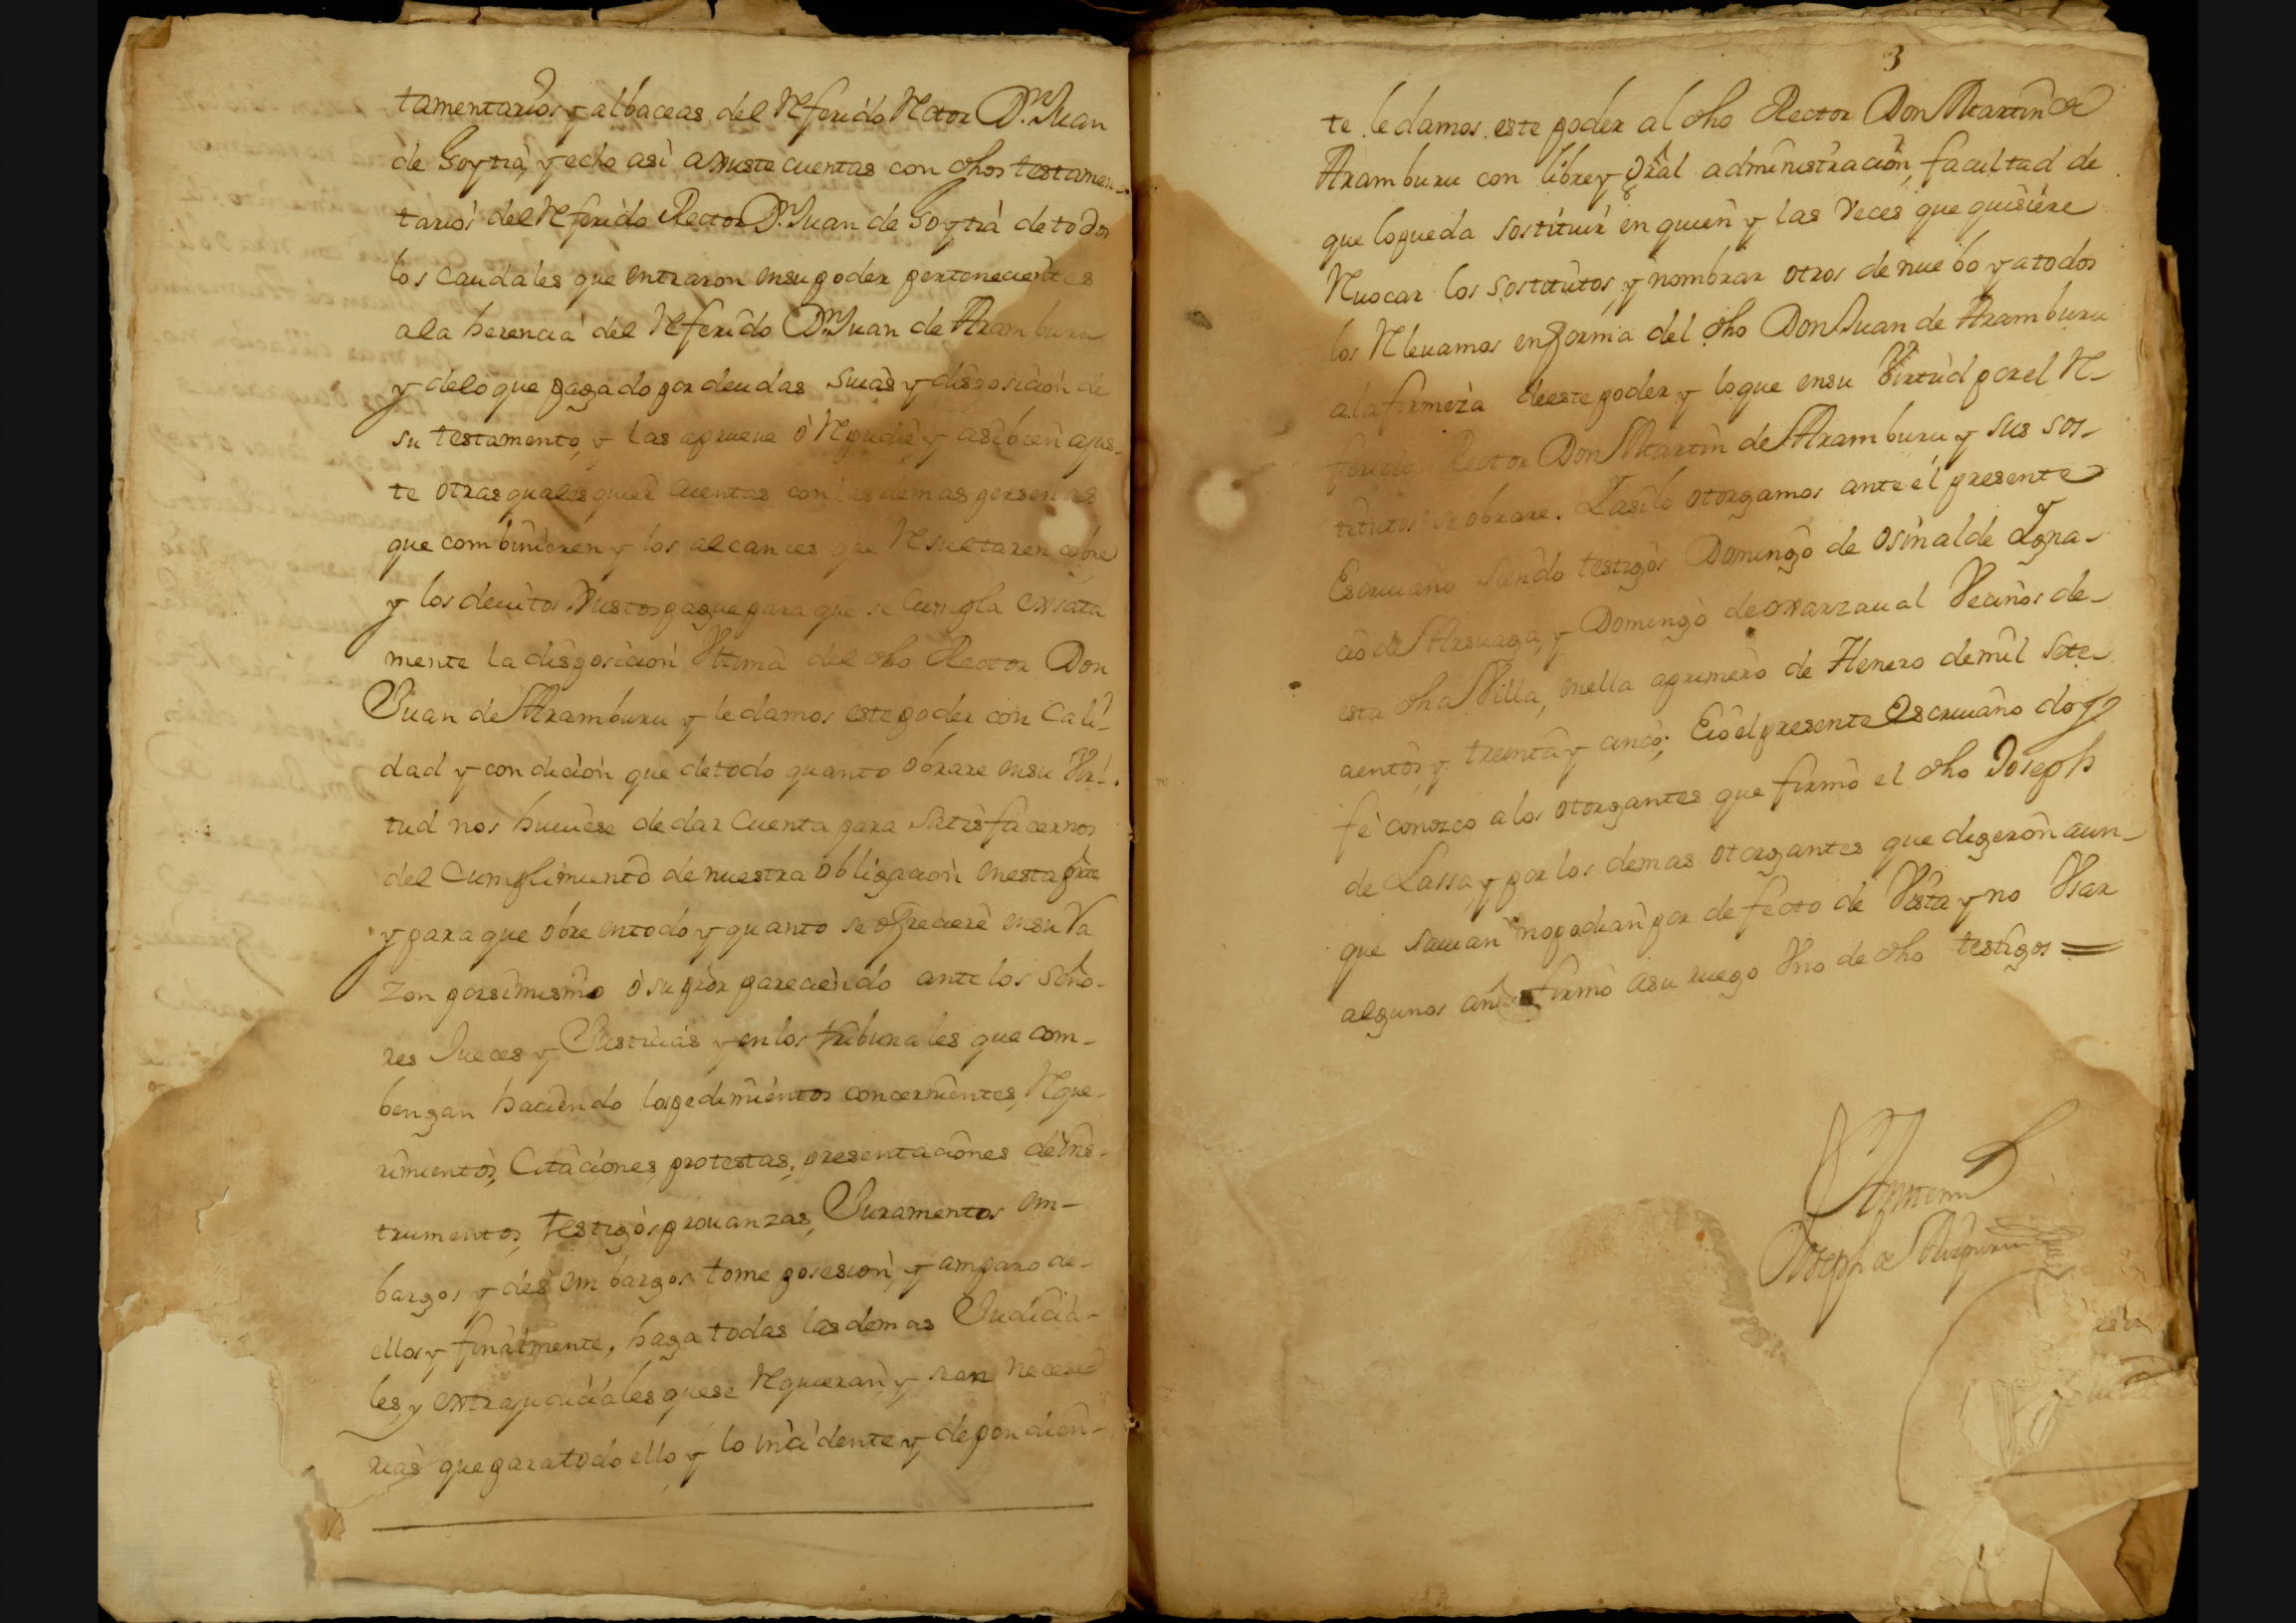 tamentarios y albaceas del Referido Rector Dn. Juan
de Goytia, y echo asi axuste cuentas con dhos testamen-
tarios del Referido Rector Dn. Juan de Goytia de todos
los caudales que entraron en su poder pertenecientes
a la herencia del Referido Dn. Juan de Aramburu
y de lo que pagado por deudas suias y disposicion de
su testamento, y las aprueve ó Repudie, y asi bien ajus-
te otras quales quier cuentas con las demas personas
que combinieren y los alcances que Resultaren cobre
y los devitos Justos pague para que se cumpla exsata
mente la disposicion Vltima del dho Rector Don
Juan de Aramburu y le damos este poder con Cali-
dad y condicion que de todo quanto obrare en su Vir-
tud nos huuiese de dar Cuenta para satisfacernos
del Cumplimiento de nuestra obligacion en esta pte
y para que obre en todo y quanto se ofreciere en su Ra
zon por si mismo ó su pror pareciendo ante los Seño-
res Jueces y Justicias y en los tribunales que com-
bengan haciendo los pedimientos concernientes, Reque-
rimientos, Citaciones, protestas, presentaciones de ins-
trumentos, testigos, prouanzas, Juramentos em-
bargos y des embargos tome posesion, y amparo de-
ellos y finalmente, haga todas las demas Judicia-
les, y extrajudiciales que se Requieran, y sean necesa-
rias que para todo ello, y lo incidente y dependien-
3
te le damos este poder al dho Rector Don Martin de
Aramburu con libre y gral administracion, facultad de
que lo pueda sostituir en quien y las Veces que quisiere
Reuocar los sostitutos, y nombrar otros de nuebo y a todos
los Releuamos en forma del dho Don Juan de Aramburu
a la firmeza de este poder y lo que en su Virtud por el Re-
ferido Rector Don Martin de Aramburu y sus sos-
titutos se obrare. Y asi lo otorgamos ante el presente
Escriuano siendo testigos Domingo de Osinalde Igna-
cio de Arsuaga, y Domingo de oxarzaual Vecinos de-
esta dha Villa, en ella a primero de Henero de mil sete-
cientos y treinta y cinco; E io el presente Escriuano doy
fe conozco a los otorgantes que firmó el dho Joseph
de Lassa, y por los demas otorgantes que digeron aun-
que sauian no podian por defecto de Vista y no Vsar
algunos años firmó a su ruego Vno de dho testigos =
Joseph de